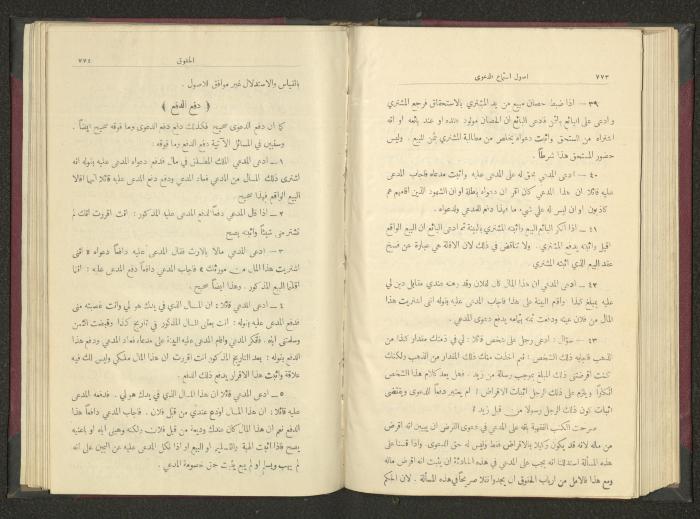 ٧٧٣ اصول استماع الدعوى
٣٩ — اذا ضبط حصان مبيع من يد المشتري بالاستحقاق فرجع المشتري
و ادعى على البائع بالثمن فادعى البائع ان الحصان مولود عنده او عند بائعه او انه
اشتراه من المستحق واثبت دعواه يخلص من مطالبة المشتري بثمن المبيع . وليس
حضور المستحق هذا شرطاً .
٤٠ — ادعى المدعي بحق له على المدعى عليه واثبت مدعاه فاجاب المدعى
عليه قائلا ان هذا المدعي كان اقر ان دعواه باطلة او ان الشهود الذين اقامهم هم
كاذبون او ان ليس له علي شيء ما فهذا دفع للمدعي ولدعواه .
٤١ — اذا انكر البائع البيع واثبته المشتري بالبينة ثم ادعى البائع ان البيع الواقع
اقيل واثبته يدفع المشتري . ولا تناقض في ذلك لان الاقالة هي عبارة عن فسخ
عقد البيع الذي اثبته المشتري .
٤٢ — ادعى المدعي ان هذا المال كان لفلان وقد رهنه عندي مقابل دين لي
عليه بمبلغ كذا واقام البينة على هذا فاجاب المدعى عليه بقوله انني اشتريت هذا
المال من فلان عينه ودفعت ثمنه بتمامه يدفع دعوى المدعي .
٤٣ — سؤال : ادعى رجل على شخص قائلا : لي في ذمتك مقدار كذا من
الذهب فاجابه ذلك الشخص : نعم اخذت منك ذلك المقدار من الذهب ولكنك
كنت اقرضتني ذلك المبلغ بموجب رسالة من زيد . فهل يعد كلام هذا الشخص
انكاراً ويلزم على ذلك الرجل اثبات الاقراض ام يعتبر دفعاً للدعوى ويقتضي
اثبات كون ذلك الرجل رسولا من قبل زيد ؟
صرحت الكتب الفقهية بانه على المدعي في دعوى القرض ان يبين انه اقرض
من ماله لانه قد يكون وكيلا بالاقراض فقط وليس له حق الدعوى واذا قسنا على
هذه المسألة استدللنا انه يجب على المدعي في هذه المادة ان يثبت انه اقرض ماله
ومع هذا فالامل من ارباب الحقوق ان يجدوا نقلا صريحاً في هذه المسألة . لان الحكم
الحقوق ٧٧٤
بالقياس والاستدلال غير موافق للاصول .
﴿ دفع الدفع ﴾
كما ان دفع الدعوى صحيح فكذلك دفع دفع الدعوى وما فوقه صحيح ايضاً .
وسنبين في المسائل الآتية دفع الدفع وما فوقه :
١ — ادعى المدعي الملك المطلق في مال فدفع دعواه المدعى عليه بقوله انه
اشترى ذلك المال من المدعي فعاد المدعي ودفع دفع المدعى عليه قائلا انهما اقالا
البيع الواقع فهذا صحيح .
٢ — اذا قال المدعي دفعاً لدفع المدعى عليه المذكور : انت اقررت انك لم
تشتر مني شيئاً واثبته يصح
٣ — ادعى المدعي مالا بالارث فقال المدعى عليه دافعاً دعواه « انني
اشتريت هذا المال من مورثك » فاجاب المدعي دافعاً دفع المدعى عليه : اننا
اقلنا البيع المذكور . وهذا ايضاً صحيح .
٤ — ادعى المدعي قائلا : ان المال الذي في يدك هو لي وانت غصبته مني
فدفع المدعى عليه بقوله : انت بعتني المال المذكور في تاريخ كذا وقبضت الثمن
وسلمتني اياه . فانكر المدعي واقام المدعى عليه البينة على مدعاه فعاد المدعي ودفع هذا
الدفع بقوله : بعد التاريخ المذكور انت اقررت ان هذا المال ملكي وليس لك فيه
علاقة واثبت هذا الاقرار يدفع ذلك الدفع .
٥ — ادعى المدعي قائلا ان هذا المال الذي في يدك هو لي . فدفعه المدعى
عليه قائلا : ان هذا المال اودع عندي من قبل فلان . فاجاب المدعي دافعاً هذا
الدفع نعم ان هذا المال كان عندك وديعة من قبل فلان ولكنه وهبني اياه او باعنيه
يصح فاذا اثبت الهبة والتسليم او البيع او اذا نكل المدعى عليه عن اليمين على انه
لم يهب ويسلم او لم يبع يثبت حق خصومة المدعي .